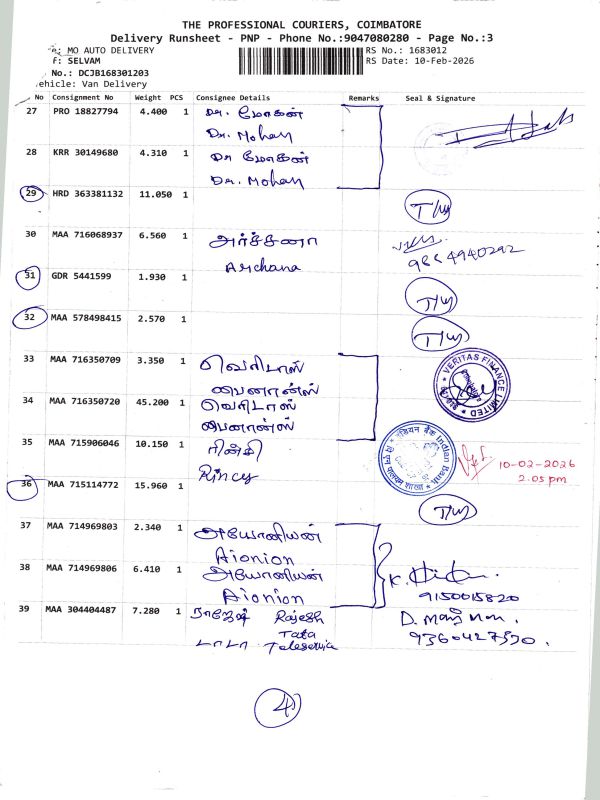 THE PROFESSIONAL COURIERS, COIMBATORE
Delivery Runsheet - PNP - Phone No.:9047080280 - Page No.:3
: MO AUTO DELIVERY RS No.: 1683012
: SELVAM RS Date: 10-Feb-2026
No.: DCJB168301203
ehicle: Van Delivery
No Consignment No Weight PCS Consignee Details Remarks Seal & Signature
27 PRO 18827794 4.400 1 Dr. மோகன்
Dr. Mohan
28 KRR 30149680 4.310 1 Dr மோகன்
Dr. Mohan
29 HRD 363381132 11.050 1 T/W
30 MAA 716068937 6.560 1 அர்ச்சனா
Archana
31 GDR 5441599 1.930 1 T/W
32 MAA 578498415 2.570 1 T/W
33 MAA 716350709 3.350 1 வெரிடாஸ்
பைனான்ஸ்
VERITAS FINANCE LIMITED
34 MAA 716350720 45.200 1 வெரிடாஸ்
பைனான்ஸ்
35 MAA 715906046 10.150 1 ரின்சி
Rincy
इंडियन बैंक Indian Bank
10-02-2026
2.05 pm
36 MAA 715114772 15.960 1 T/W
37 MAA 714969803 2.340 1 அயோனியன்
Aionion
38 MAA 714969806 6.410 1 அயோனியன்
Aionion
9150015820
39 MAA 304404487 7.280 1 ராஜேஷ் Rajesh
டாடா Tata Teleservice
9360427570.